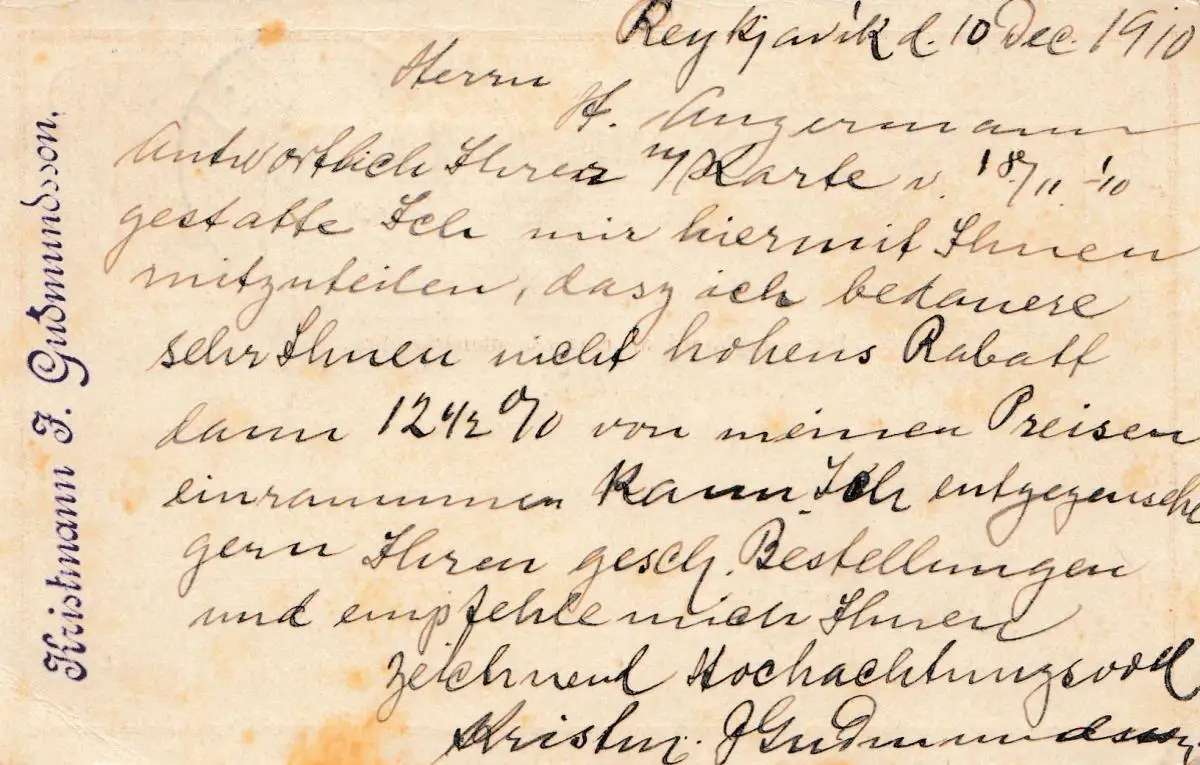 Reykjavík d. 10 Dec. 1910
Herrn
H. Angermann
Antwortlich Ihrer Karte v. 18/11 -10
gestatte Ich mir hiermit Ihnen
mitzuteilen, dasz ich bedauere
sehr Ihnen nicht hohens Rabatt
dann 12 1/2 % von meinen Preisen
einraummen kann. Ich entgegensehe
gern Ihren gesch. Bestellungen
und empfehle mich Ihnen
zeichnend Hochachtungsvoll
Kristm. J Guðmundsson
Kristmann J. Guðmundsson.